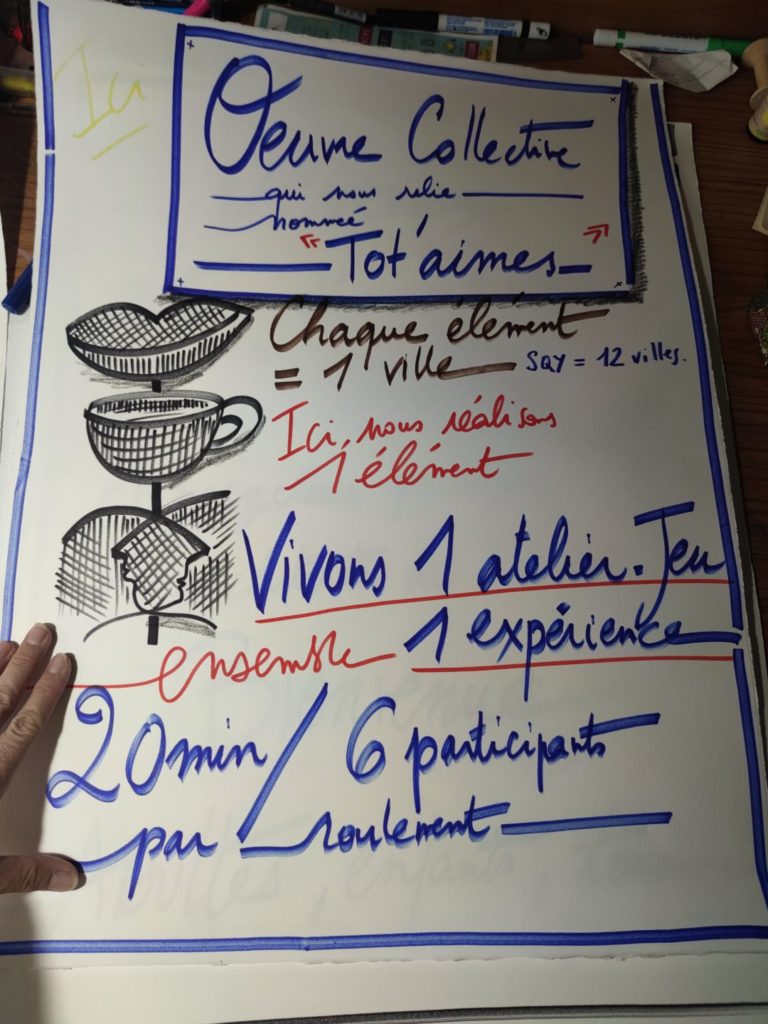 Ici
Oeuvre Collective
qui nous relie
nommée
Tot'aimes
Chaque élément
= 1 ville SQY = 12 villes.
Ici, nous réalisons
1 élément
Vivons 1 atelier. Jeu
ensemble 1 expérience
20min / 6 participants
par roulement
Bienvenue
Adultes, enfants,